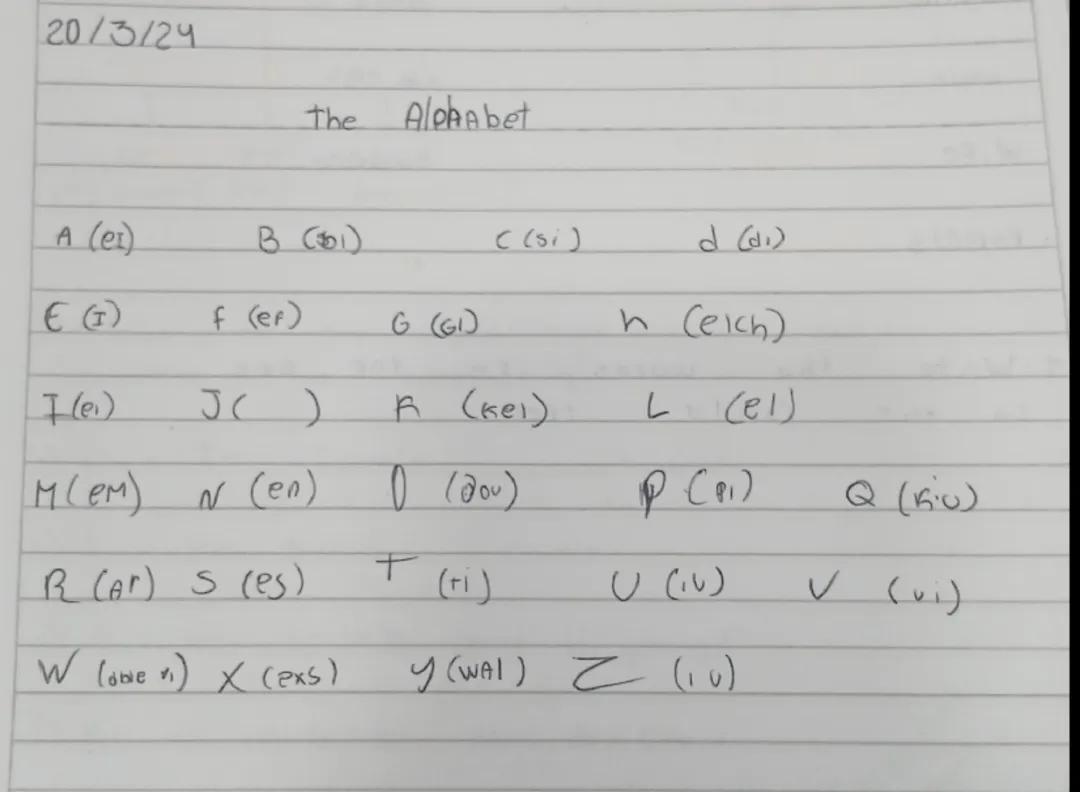 20/3/24
the Alphabet
A (eI) B (bi) C (si) d (di)
E (I) f (ef) G (Gi) h (eich)
I (ei) J ( ) K (kei) L (el)
M (eM) N (en) O (ou) P (pi) Q (kiu)
R (Ar) S (es) T (ti) U (iu) V (vi)
W X (exs) y (WAI) Z (iu)